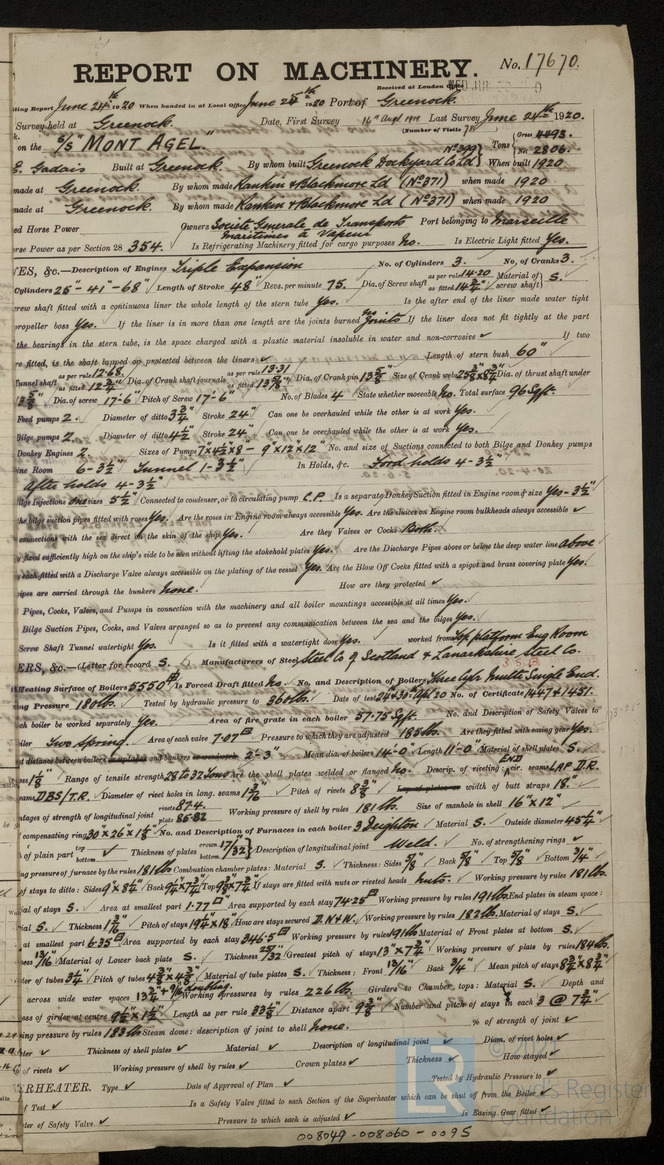 REPORT ON MACHINERY. No. 17670.
Received at London Office
Report June 24th 1920 When handed in at Local Office June 25th 1920 Port of Greenock.
Survey held at Greenock. Date, First Survey 16th Augt 1919 Last Survey June 24th 1920.
(Number of Visits
on the S/S "MONT AGEL." Tons Gross 4493. Net 2806.
Built at Greenock. By whom built Greenock Dockyard Co Ld When built 1920
made at Greenock. By whom made Rankin & Blackmore Ld (No 371) when made 1920
made at Greenock. By whom made Rankin & Blackmore Ld (No 371) when made 1920
ed Horse Power Owners Société Generale de Transports Maritimes à Vapeur Port belonging to Marseille
rse Power as per Section 28 354. Is Refrigerating Machinery fitted for cargo purposes No. Is Electric Light fitted Yes.
ES, &c.—Description of Engines Triple Expansion No. of Cylinders 3. No. of Cranks 3.
Cylinders 25"-41"-68" Length of Stroke 48" Revs. per minute 75. Dia. of Screw shaft as per rule 14.20 as fitted Material of screw shaft S.
crew shaft fitted with a continuous liner the whole length of the stern tube Yes. Is the after end of the liner made water tight
ropeller boss Yes. If the liner is in more than one length are the joints burned If the liner does not fit tightly at the part
the bearings in the stern tube, is the space charged with a plastic material insoluble in water and non-corrosive ✓ If two
re fitted, is the shaft lapped or protected between the liners ✓ Length of stern bush 60"
Tunnel shaft as per rule 12.68 as fitted 12 3/4" Dia. of Crank shaft journals as per rule 13.31 as fitted 13 5/8" Dia. of Crank pin 13 5/8" Size of Crank webs Dia. of thrust shaft under
13 5/8" Dia. of screw 17-6" Pitch of Screw 17-6" No. of Blades 4 State whether moveable No. Total surface 96 Sqft.
Feed pumps 2. Diameter of ditto 3 3/4" Stroke 24" Can one be overhauled while the other is at work Yes.
Bilge pumps 2. Diameter of ditto 4 1/2" Stroke 24" Can one be overhauled while the other is at work Yes.
Donkey Engines 2 Sizes of Pumps 7 x 4 1/2 x 8 - 9" x 12" x 12" No. and size of Suctions connected to both Bilge and Donkey pumps
ine Room 6-3 1/2" Tunnel 1-3 1/2" In Holds, &c. Ford holds 4-3 1/2"
After holds 4-3 1/2"
lge Injections One sizes 5 1/2" Connected to condenser, or to circulating pump C.P. Is a separate Donkey Suction fitted in Engine room & size Yes-3 1/2"
he bilge suction pipes fitted with roses Yes. Are the roses in Engine room always accessible Yes. Are the sluices on Engine room bulkheads always accessible ✓
connections with the sea direct on the skin of the ship Yes. Are they Valves or Cocks Both.
fixed sufficiently high on the ship's side to be seen without lifting the stokehold plates Yes. Are the Discharge Pipes above or below the deep water line above
each fitted with a Discharge Valve always accessible on the plating of the vessel Yes. Are the Blow Off Cocks fitted with a spigot and brass covering plate Yes.
ipes are carried through the bunkers None. How are they protected ✓
Pipes, Cocks, Valves, and Pumps in connection with the machinery and all boiler mountings accessible at all times Yes.
Bilge Suction Pipes, Cocks, and Valves arranged so as to prevent any communication between the sea and the bilges Yes.
Screw Shaft Tunnel watertight Yes. Is it fitted with a watertight door Yes. worked from Top platform Eng Room
ERS, &c.—(Letter for record S.) Manufacturers of Steel Steel Co of Scotland & Lanarkshire Steel Co.
Heating Surface of Boilers 5550 Is Forced Draft fitted No. No. and Description of Boilers Three Cyl Multr Single End.
ing Pressure 180 lbs. Tested by hydraulic pressure to 360 lbs. Date of test No. of Certificate 1447 & 1451.
ch boiler be worked separately Yes. Area of fire grate in each boiler 57.75 Sqft. No. and Description of Safety Valves to
iler Two Spring. Area of each valve 7.07 Pressure to which they are adjusted 185 lbs. Are they fitted with easing gear Yes.
st distance between boilers 2'-3" Mean dia. of boilers 14'-0" Length 11'-0" Material of shell plates S.
ess 1 1/8" Range of tensile strength 28 to 32 tons Are the shell plates welded or flanged No. Descrip. of riveting: cir. seams END LAP D.R.
eams D.B.S/T.R. Diameter of rivet holes in long. seams 1 3/16" Pitch of rivets 8 3/8" width of butt straps 18"
ntages of strength of longitudinal joint rivets 87.4. plate 85.82 Working pressure of shell by rules 181 lbs. Size of manhole in shell 16" x 12"
compensating ring No. and Description of Furnaces in each boiler 3 Deighton Material S. Outside diameter 45 1/4"
of plain part top bottom Thickness of plates crown bottom 17/32" Description of longitudinal joint Weld. No. of strengthening rings ✓
ng pressure of furnace by the rules 181 lbs Combustion chamber plates: Material S. Thickness: Sides 5/8" Back 5/8" Top 5/8" Bottom 3/4"
of stays to ditto: Sides Back Top If stays are fitted with nuts or riveted heads nuts. Working pressure by rules 181 lbs.
ial of stays S. Area at smallest part 1.77 Area supported by each stay 74.25 Working pressure by rules 191 lbs End plates in steam space:
ial S. Thickness 1 3/16" Pitch of stays How are stays secured D.N&W. Working pressure by rules 182 lbs. Material of stays S.
at smallest part 6.35 Area supported by each stay 346.5 Working pressure by rules 191 lbs Material of Front plates at bottom S.
ess 13/16" Material of Lower back plate S. Thickness 25/32" Greatest pitch of stays 13" x 7 3/4" Working pressure of plate by rules 184 lbs.
ter of tubes 3 1/4" Pitch of tubes Material of tube plates S. Thickness: Front 13/16" Back 3/4" Mean pitch of stays
across wide water spaces doubling Working pressures by rules 226 lbs. Girders to Chamber tops: Material S. Depth and
ess of girder at centre 9 1/2" x 1 1/2" Length as per rule 33 1/2" Distance apart 9 3/8" Number and pitch of stays in each 3 @ 7 3/4"
ing pressure by rules 183 lbs Steam dome: description of joint to shell none. % of strength of joint ✓
eter ✓ Thickness of shell plates ✓ Material ✓ Description of longitudinal joint ✓ Diam. of rivet holes ✓
of rivets ✓ Working pressure of shell by rules ✓ Crown plates ✓ Thickness ✓ How stayed ✓
RHEATER. Type ✓ Date of Approval of Plan ✓ Tested by Hydraulic Pressure to ✓
of Test ✓ Is a Safety Valve fitted to each Section of the Superheater which can be shut off from the Boiler ✓
ter of Safety Valve ✓ Pressure to which each is adjusted ✓ Is Easing Gear fitted ✓
008049-008060-0095
LR
Lloyd's Register
Foundation